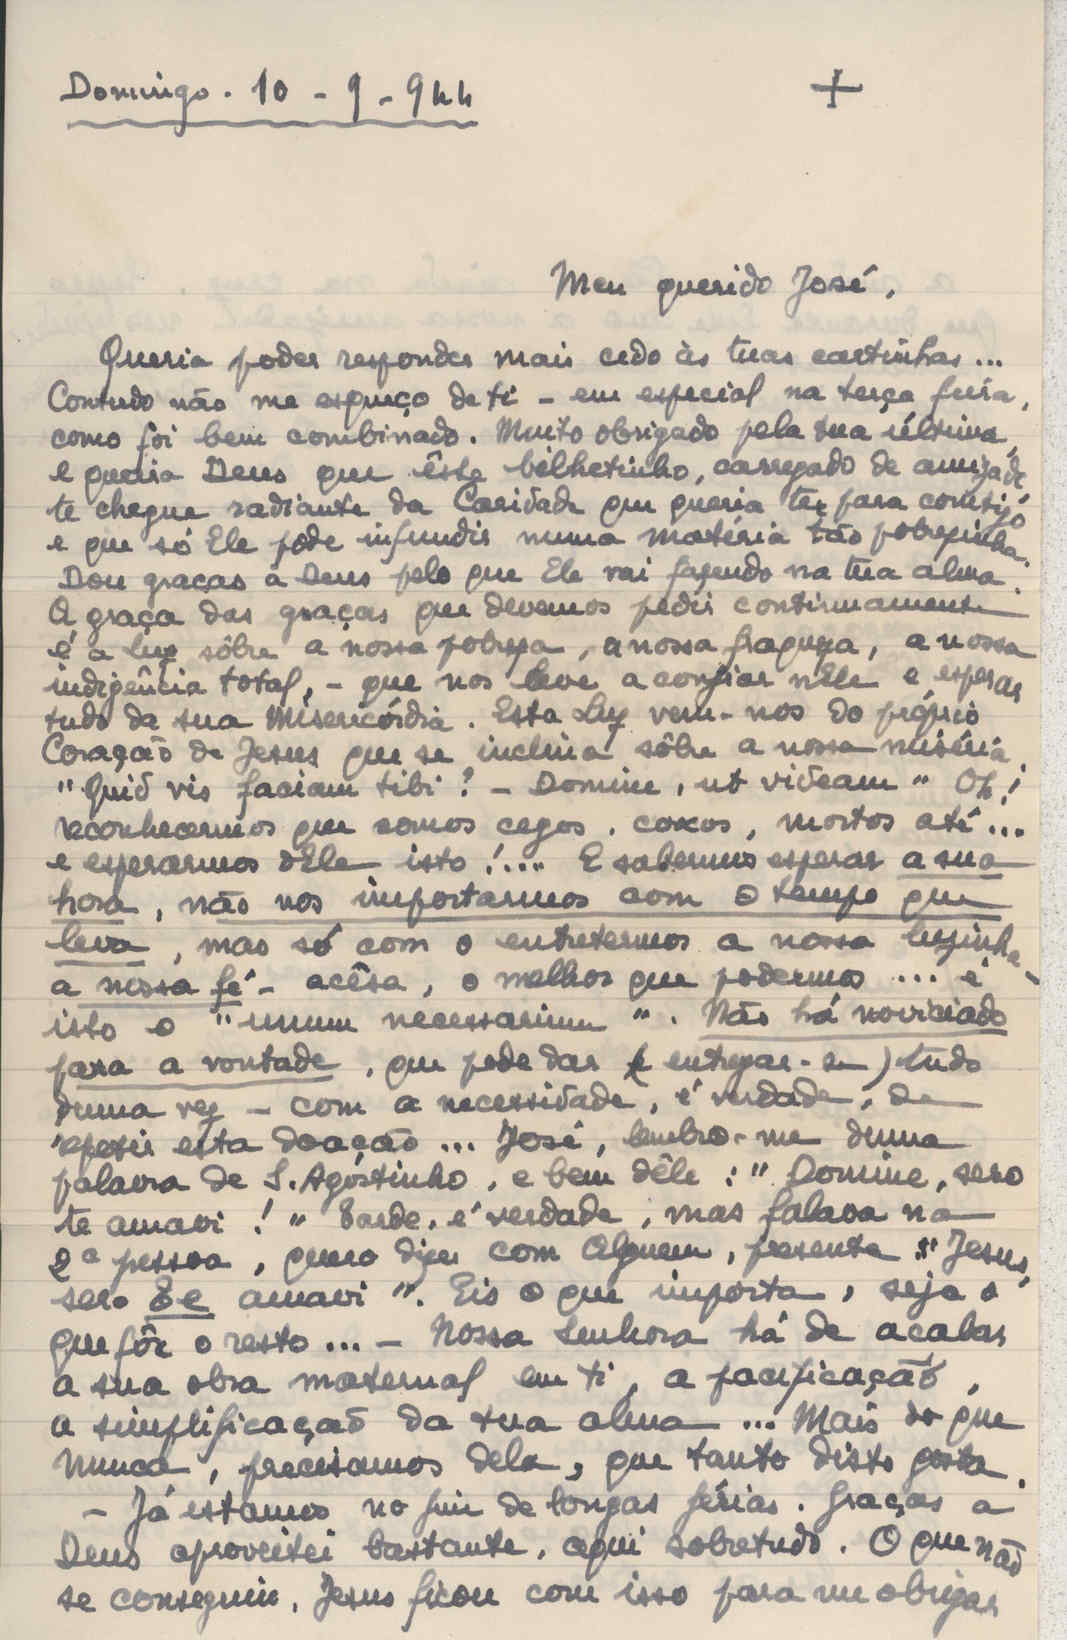 Domingo. 10 - 9 - 944 +
Meu querido José,
Queria poder responder mais cedo às tuas cartinhas...
Contudo não me esqueço de ti - em especial na terça feira,
como foi bem combinado. Muito obrigado pela tua última,
e queira Deus que êste bilhetinho, carregado de amizade
te chegue radiante da Caridade que queria ter para contigo
e que só Ele pode infundir numa matéria tão pobrezinha.
Dou graças a Deus pelo que Ele vai fazendo na tua alma.
A graça das graças que devemos pedir continuamente
é a luz sôbre a nossa pobreza, a nossa fraqueza, a nossa
indigência total, - que nos leve a confiar nEle e esperar
tudo da sua Misericórdia. Esta Luz vem-nos do próprio
Coração de Jesus que se inclina sôbre a nossa miséria.
"Quid vis faciam tibi? - Domine, ut videam" Oh!
reconhecermos que somos cegos, coxos, mortos até...
e esperarmos dEle isto!.... E sabermos esperar a sua
hora, não nos importarmos com o tempo que
leva, mas só com o entretermos a nossa luzinha -
a nossa fé - acêsa, o melhor que podermos ... é
isto o "unum necessarium". Não há noviciado
para a vontade, que pode dar (e entregar-se) tudo
duma vez - com a necessidade, é verdade, de
repetir esta doação... José, lembro-me duma
palavra de S. Agostinho, e bem dêle: "Domine, sero
te amavi!" Tarde, é verdade, mas falava na
2ª pessoa, quero dizer com Alguem, presente: "Jesus,
sero te amavi". Eis o que importa, seja o
que fôr o resto... - Nossa Senhora há de acabar
a sua obra maternal em ti, a pacificação,
a simplificação da tua alma ... Mais do que
nunca, precisamos dela, que tanto disto gosta.
- Já estamos no fim de longas férias. Graças a
Deus aproveitei bastante, aqui sobretudo. O que não
se conseguiu, Jesus ficou com isso para me obrigar